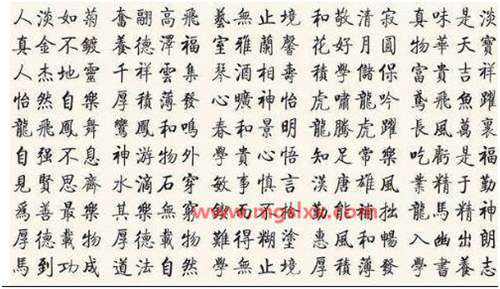 人淡如菊奮翮高飛藝無止境和敬清寂真味是淡
真金不鍍養德澤福室雅蘭馨花好月圓物華天寶
人杰地靈千祥雲集琴酒相壽積學儲保富貴吉祥
怡然自樂厚積薄發心曠神怡虎嘯龍吟鳶飛魚躍
龍飛鳳舞鸞鳳和鳴春和景明龍騰虎躍長風萬裏
自强不息神游物外學貴心悟知足常樂吃虧是福
見賢思齊水滴石穿敏事慎言漢唐雄風業精于勤
爲善最樂其樂無窮而不勤能拙龍馬精神
厚德載物厚德載物難得糊塗惠風和暢入幽出朗
馬到功成道法自然學無止境厚積薄發學書養志